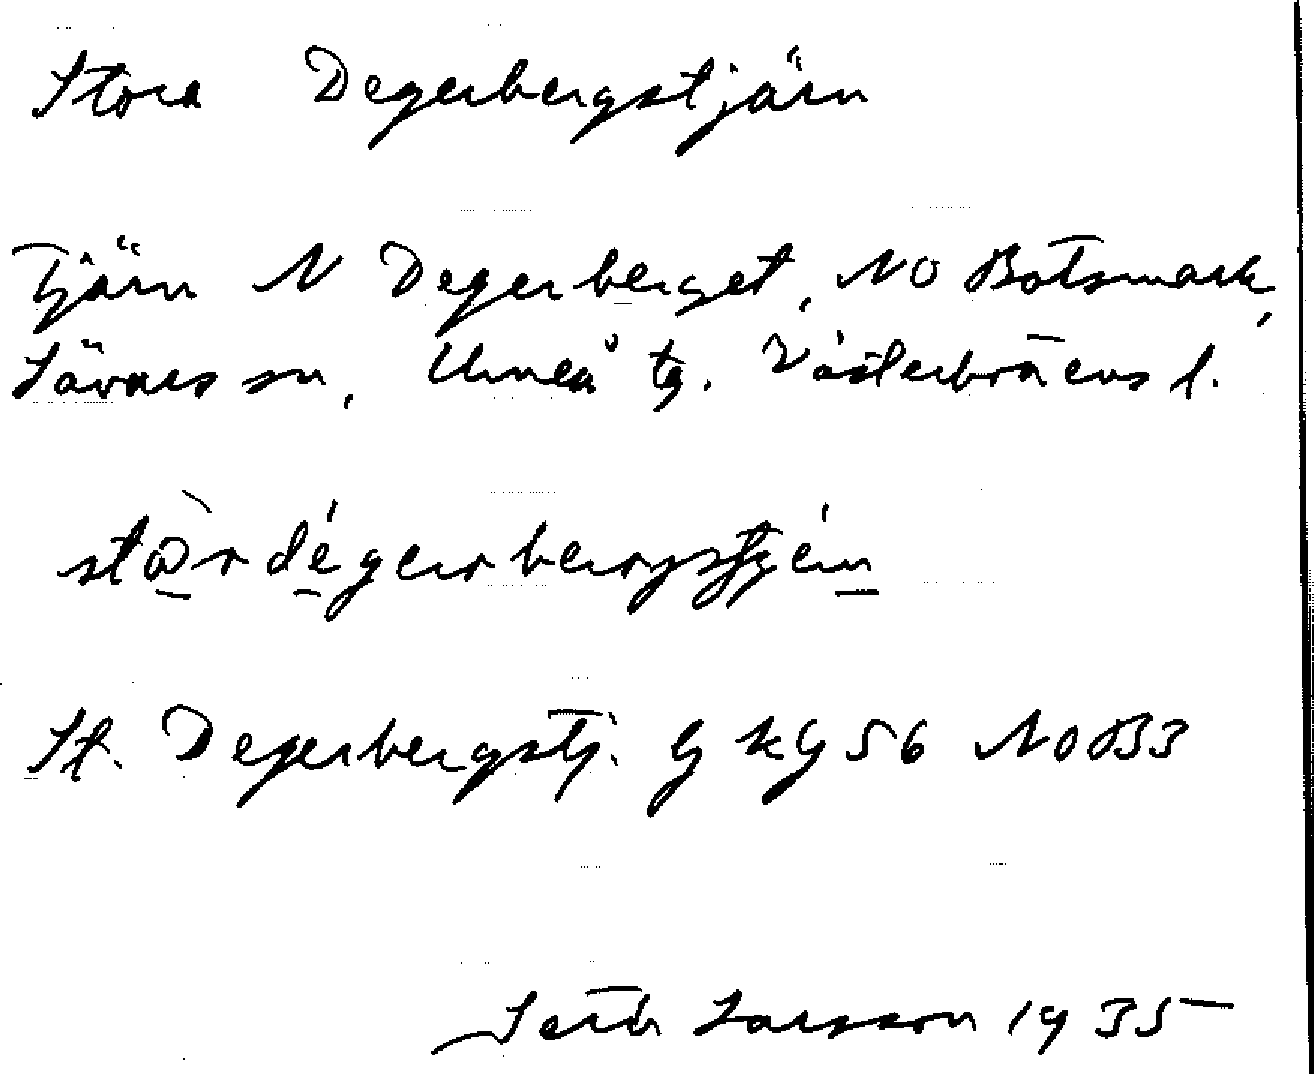 Stora Degerbergstjärn
Tjärn N Degerberget, NO Botsmark,
Sävars sn, Umeå tg. Västerbottens l.
St. Degerbergstj. G kg 56 NO B3
Seth Larsson 1935